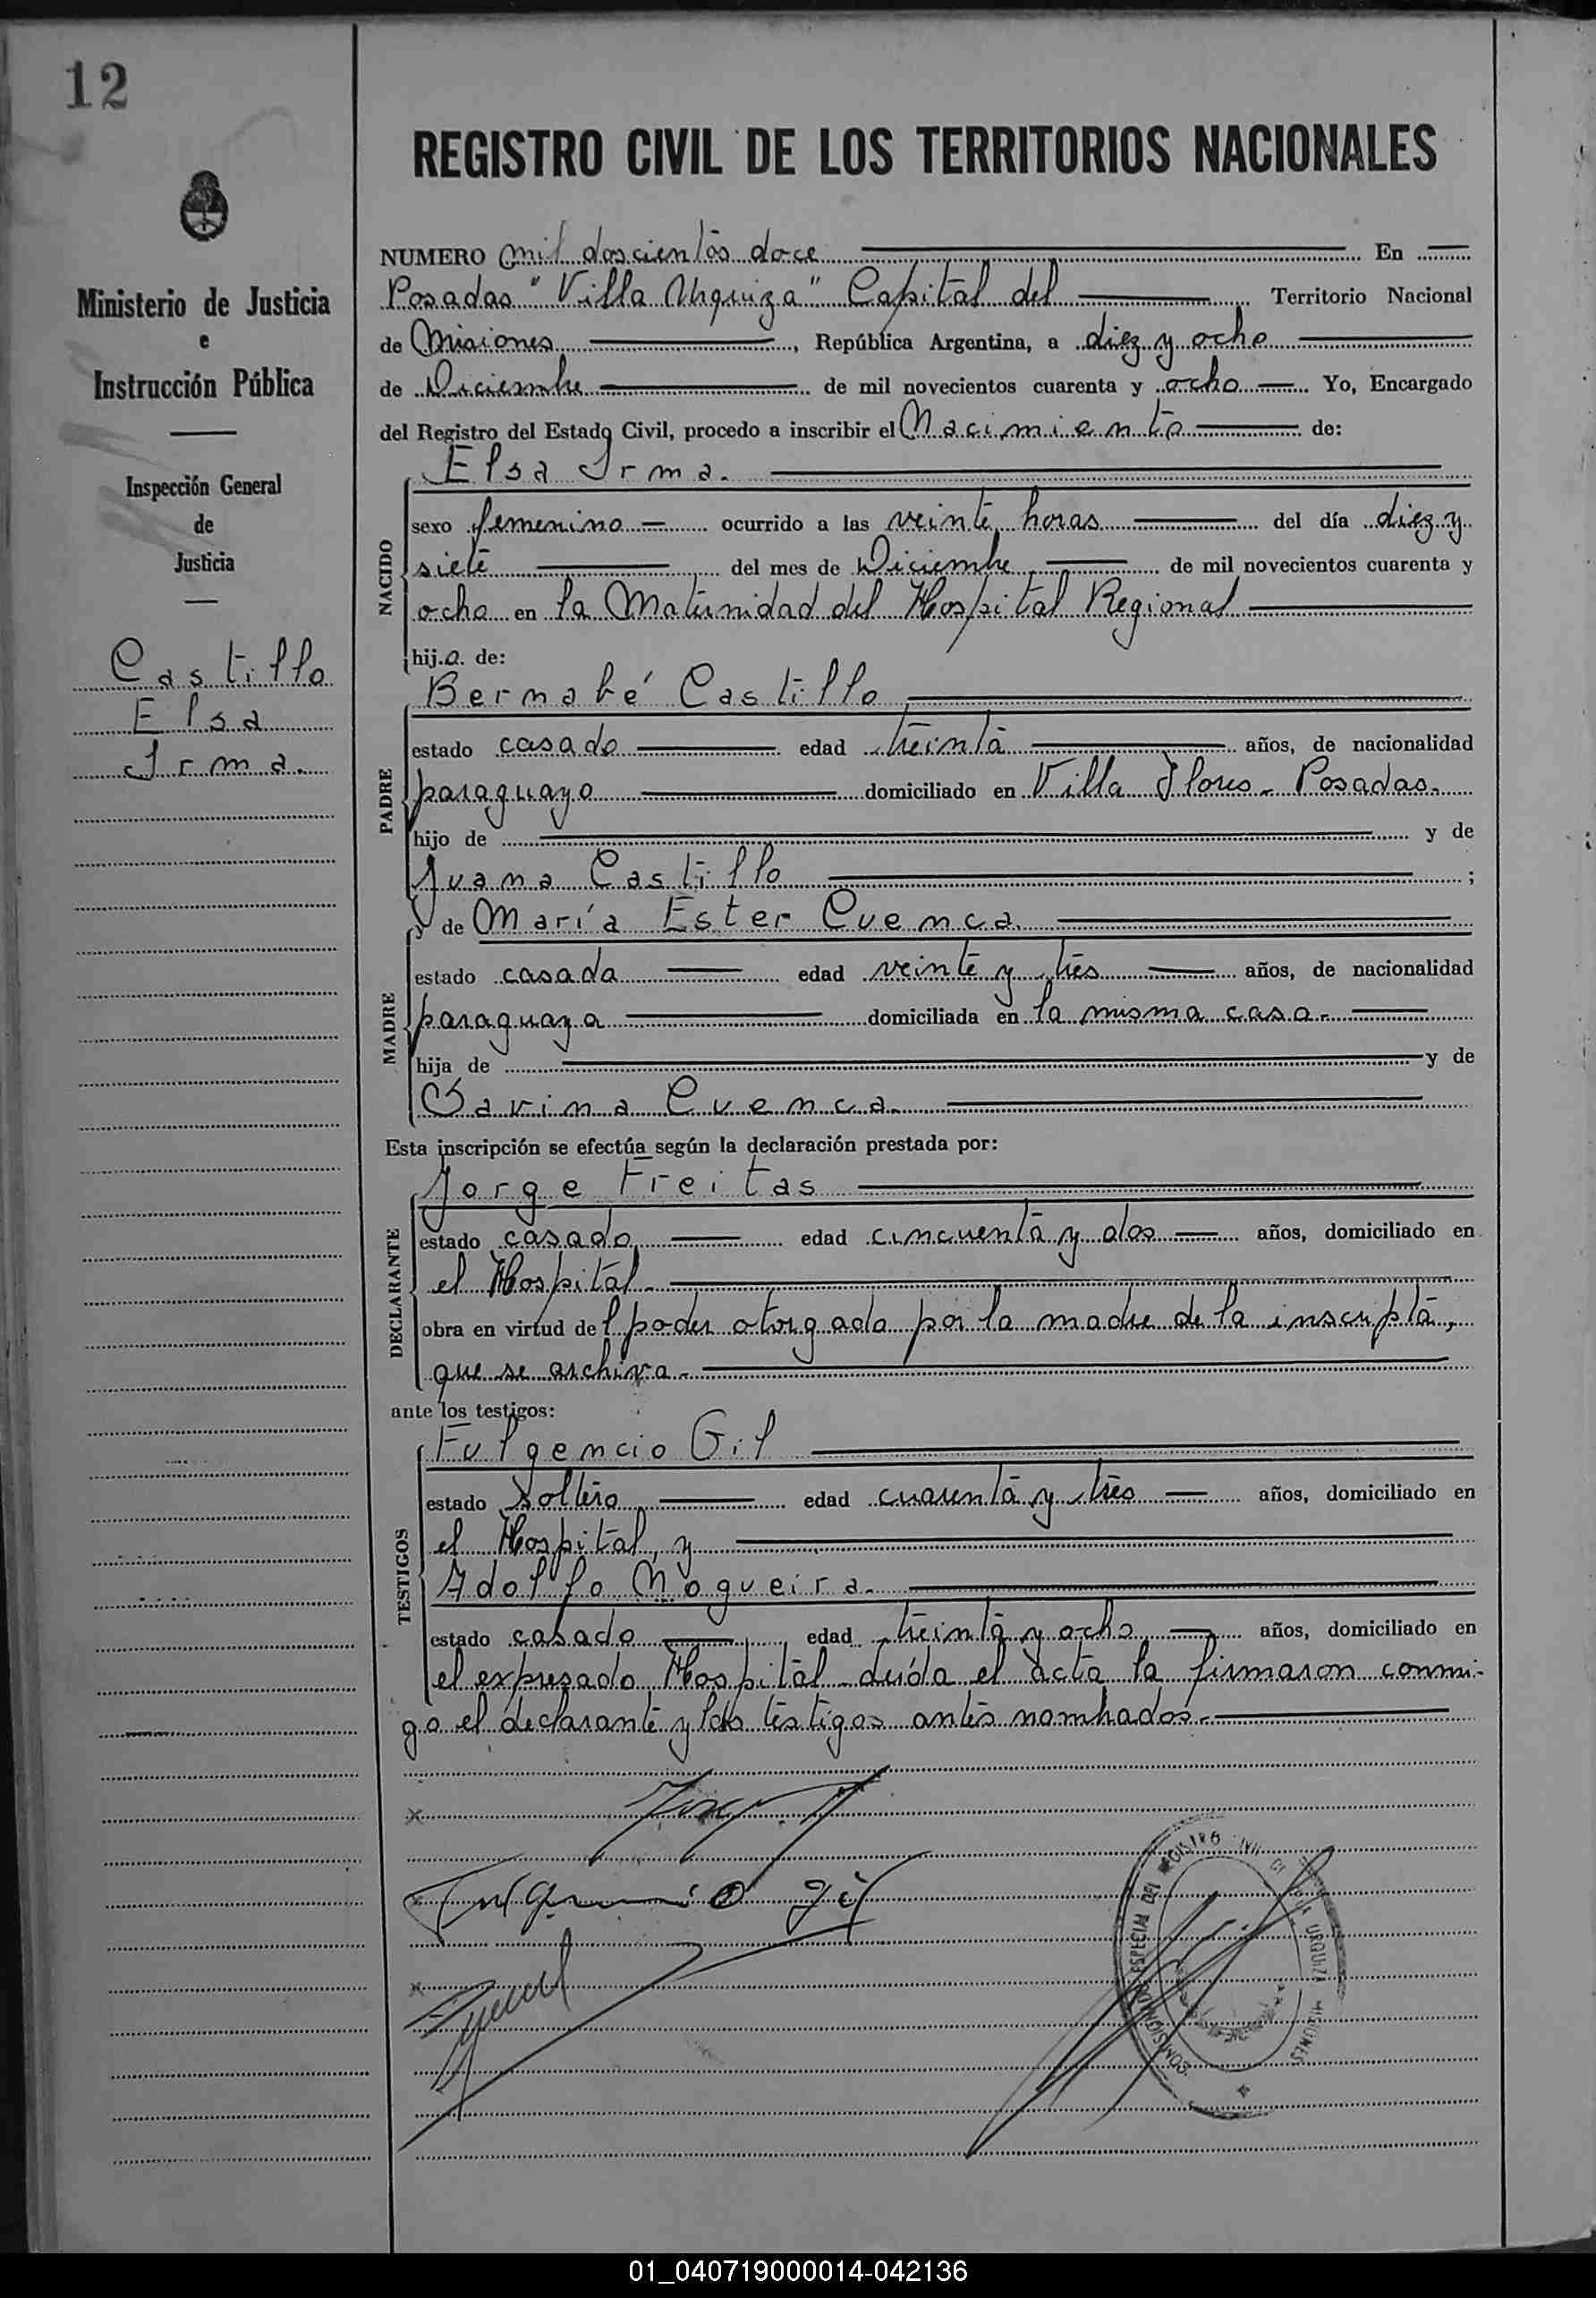 12
REGISTRO CIVIL DE LOS TERRITORIOS NACIONALES
Ministerio de Justicia
e
Instrucción Pública
Inspección General
de
Justicia
Castillo
Elsa
Irma.
NUMERO mil doscientos doce En
Posadas "Villa Urquiza" Capital del Territorio Nacional
de Misiones, República Argentina, a diez y ocho
de Diciembre de mil novecientos cuarenta y ocho Yo, Encargado
del Registro del Estado Civil, procedo a inscribir el Nacimiento de:
Elsa Irma.
NACIDO
sexo femenino ocurrido a las veinte horas del día diez y
siete del mes de Diciembre de mil novecientos cuarenta y
ocho en la Maternidad del Hospital Regional
hij.a. de:
Bernabé Castillo
PADRE
estado casado edad treinta años, de nacionalidad
paraguayo domiciliado en Villa Flores - Posadas.
hijo de y de
Juana Castillo ;
y de María Ester Cuenca.
MADRE
estado casada edad veinte y tres años, de nacionalidad
paraguaya domiciliada en la misma casa.
hija de y de
Savina Cuenca.
Esta inscripción se efectúa según la declaración prestada por:
Jorge Freitas
DECLARANTE
estado casado edad cincuenta y dos años, domiciliado en
el Hospital
obra en virtud del poder otorgado por la madre de la inscripta,
que se archiva.
ante los testigos:
Fulgencio Gil
TESTIGOS
estado soltero edad cuarenta y tres años, domiciliado en
el Hospital, y
Adolfo Nogueira.
estado casado edad treinta y ocho años, domiciliado en
el expresado Hospital - leída el acta la firmaron conmi-
go el declarante y los testigos antes nombrados.
x
x
COMISION ESPECIAL DEL REGISTRO CIVIL URQUIZA MISIONES
01_040719000014-042136